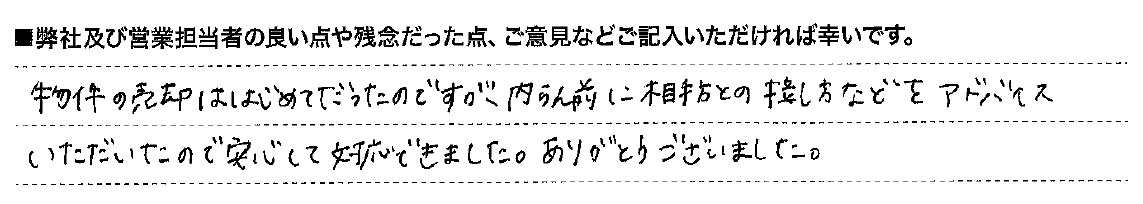 ■弊社及び営業担当者の良い点や残念だった点、ご意見などご記入いただければ幸いです。
物件の売却ははじめてだったのですが、内らん前に相手方との接し方などをアドバイス
いただいたので安心して対応できました。ありがとうございました。